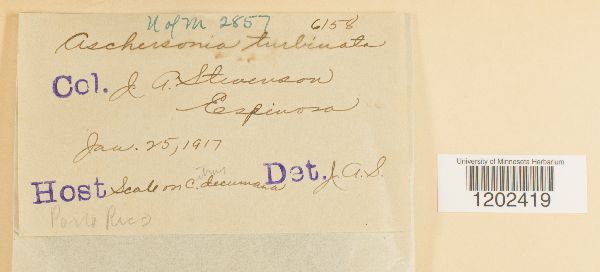 U of M 2857 6158
Aschersonia turbinata
Col. J. A. Stevenson
Espinosa
Jan. 25, 1917
Host Scale on C.itrus decumana Det. J. A. S.
Porto Rico
University of Minnesota Herbarium
1202419